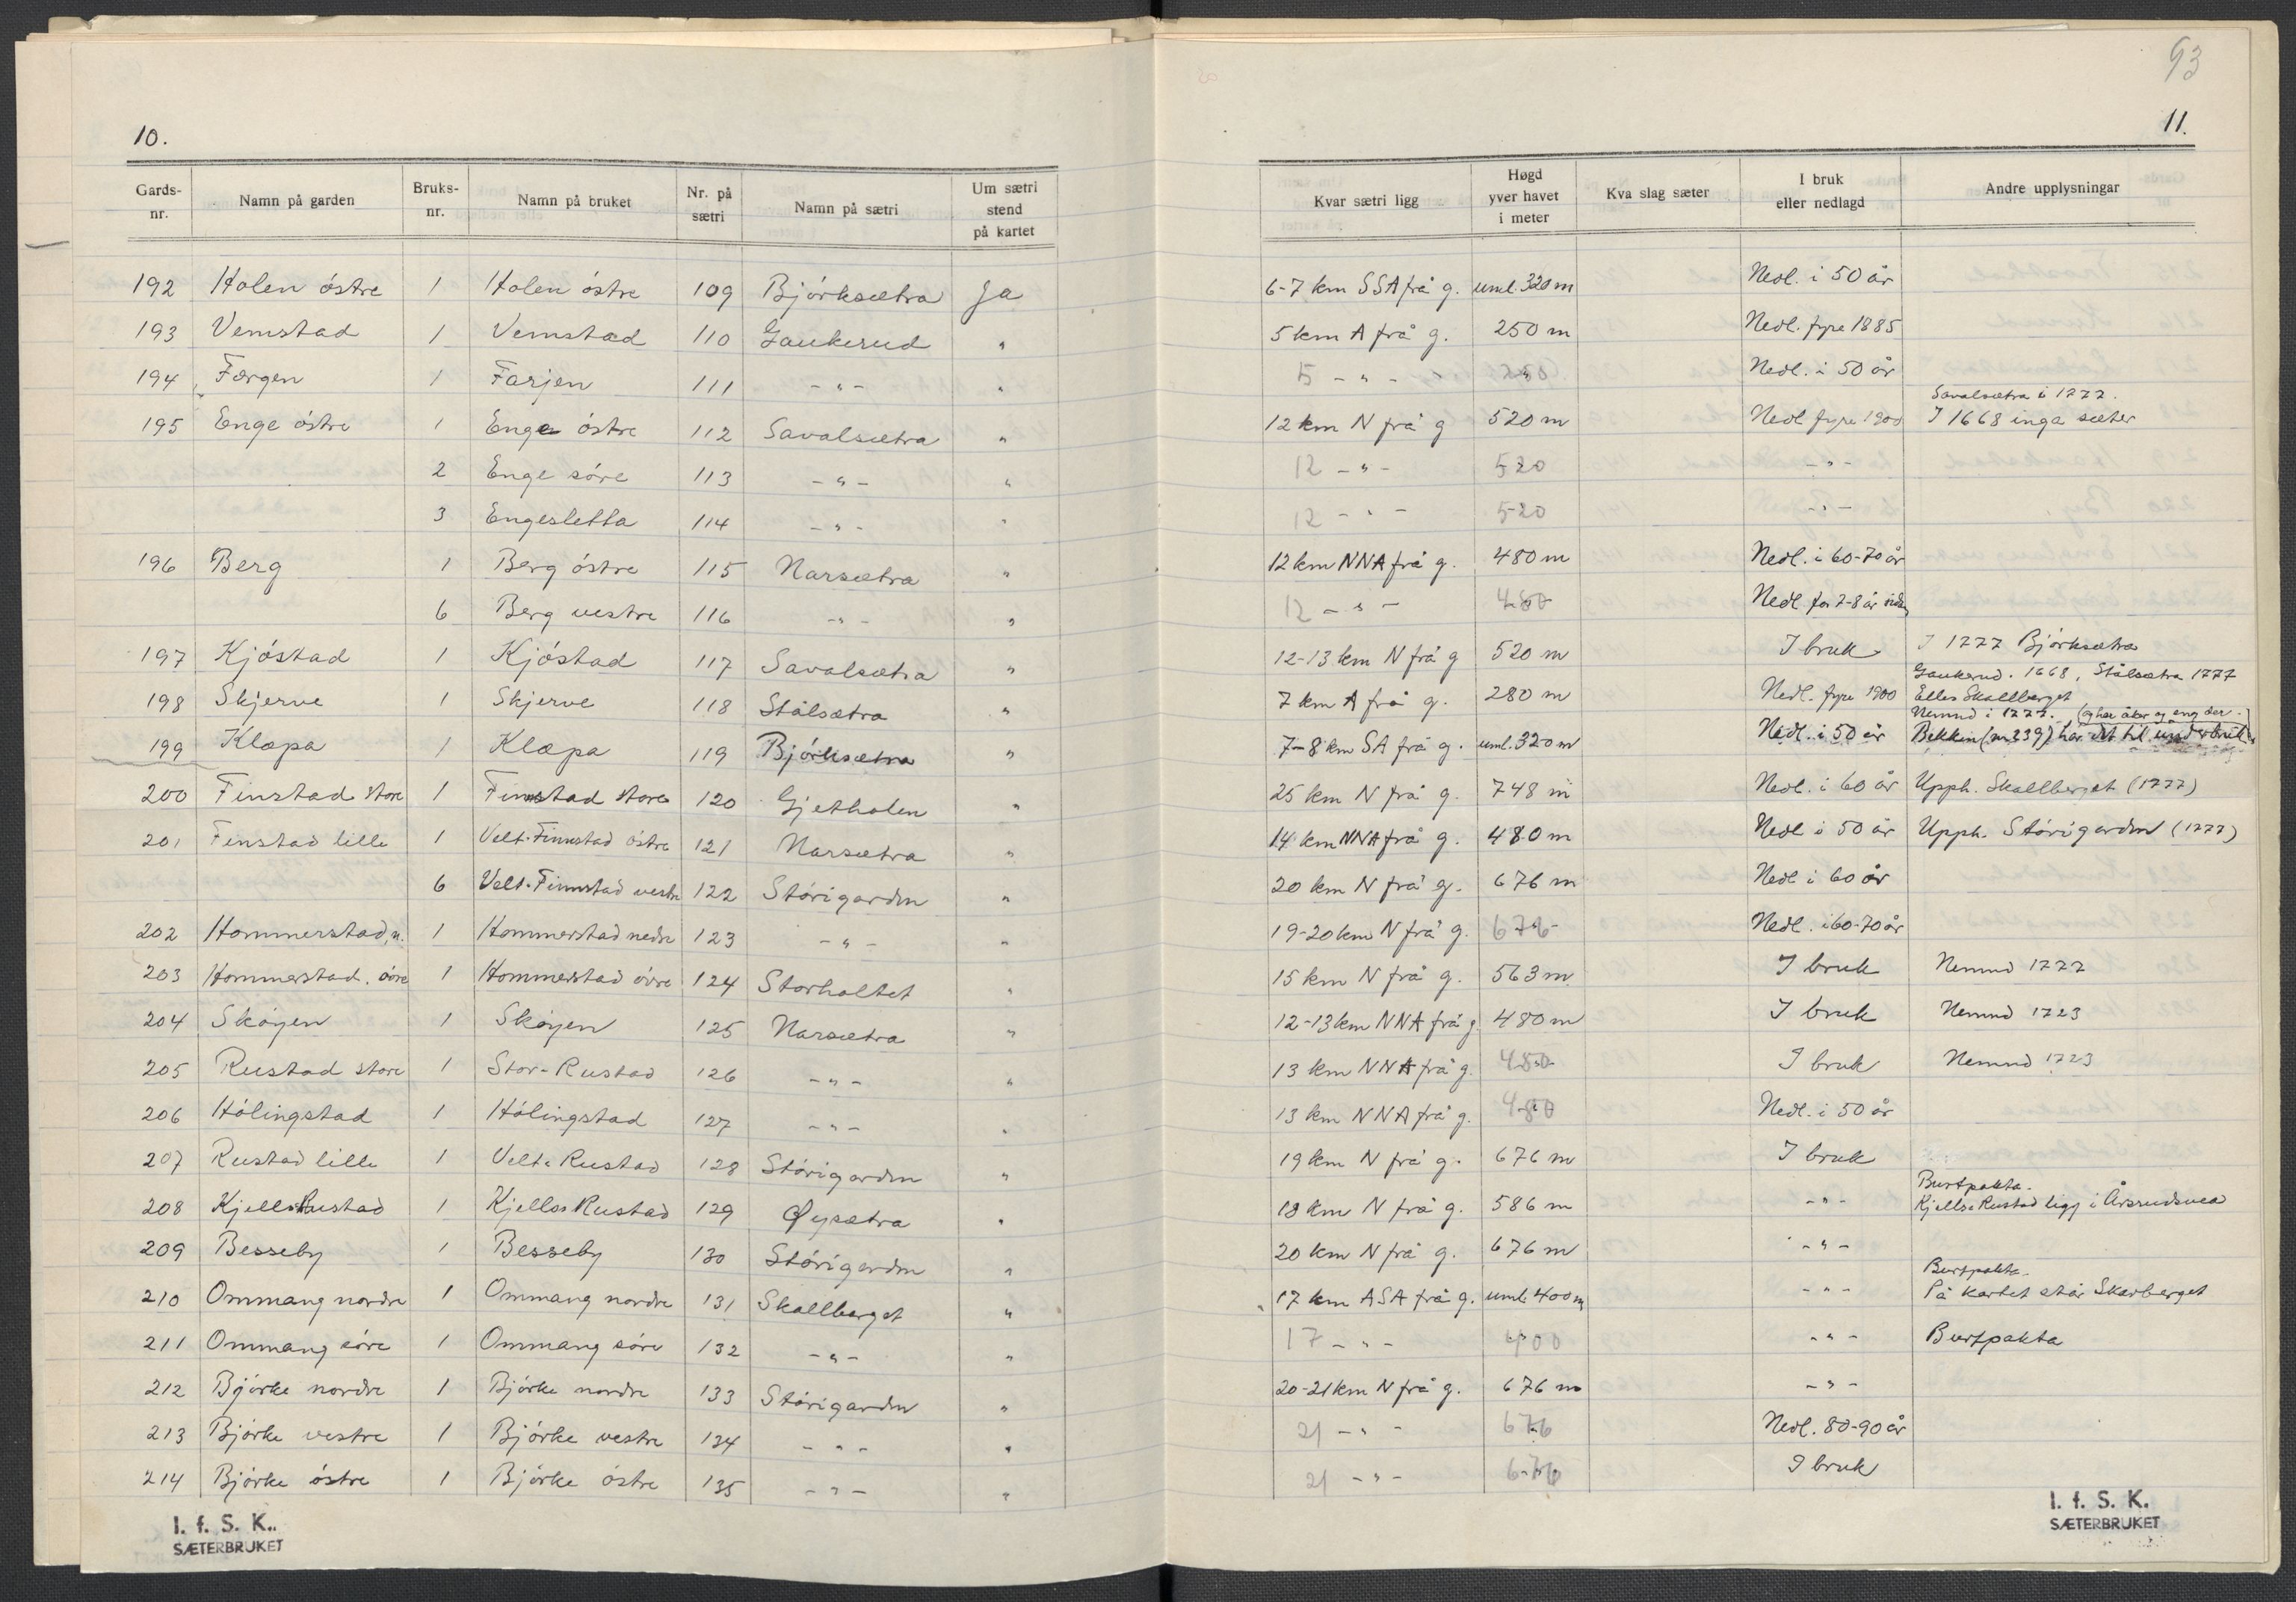 93
10.
11.
Gards-nr. | Namn på garden | Bruks-nr. | Namn på bruket | Nr. på sætri | Namn på sætri | Um sætri stend på kartet | Kvar sætri ligg | Høgd yver havet i meter | Kva slag sæter | I bruk eller nedlagd | Andre upplysningar
192 | Holen östre | 1 | Holen östre | 109 | Björksætra | Ja | 6-7 km SSA frå g. | uml. 320 m | | Nedl. i 50 år
193 | Vemstad | 1 | Vemstad | 110 | Gaukerud | " | 5 km A frå g. | 250 m | | Nedl. fyre 1885
194 | Færgen | 1 | Farjen | 111 | - " - | " | 5 - " - | 250 | | Nedl. i 50 år
195 | Enge östre | 1 | Enge östre | 112 | Savalsætra | " | 12 km N frå g | 520 m | | Nedl fyre 1900 | Savalsætra i 1777. I 1668 inga sæter
2 | Enge söre | 113 | - " - | " | 12 - " - | 520 | | - " -
3 | Engesletta | 114 | - " - | " | 12 - " - | 520 | | - " -
196 | Berg | 1 | Berg östre | 115 | Narsætra | " | 12 km NNA frå g. | 480 m | | Nedl. i 60-70 år
6 | Berg vestre | 116 | - " - | " | 12 - " - | 480 | | Nedl. for 7-8 år sidan
197 | Kjöstad | 1 | Kjöstad | 117 | Savalsætra | " | 12-13 km N frå g | 520 m | | I bruk | I 1777 Björksætra
198 | Skjerve | 1 | Skjerve | 118 | Stålsætra | " | 7 km A frå g. | 280 m | | Nedl. fyre 1900 | Gaukerud. 1668, Stålsætra 1777 Elles Skallberget
199 | Klæpa | 1 | Klæpa | 119 | Björksætra | " | 7-8 km SA frå g. | uml. 320 m | | Nedl. i 50 år | Nemnd i 1777. (og har åker og eng der.) Bekkin (nr 239) har det til underbruk
200 | Finstad store | 1 | Finnstad store | 120 | Gjetholen | " | 25 km N frå g. | 748 m | | Nedl. i 60 år | Upph. Skallberget (1777)
201 | Finstad lille | 1 | Velt-Finnstad östre | 121 | Narsætra | " | 14 km NNA frå g. | 480 m | | Nedl i 50 år | Upph. Störigardn (1777)
6 | Velt-Finnstad vestre | 122 | Störigardn | " | 20 km N frå g. | 676 m | | Nedl i 60 år
202 | Hommerstad, n. | 1 | Hommerstad nedre | 123 | - " - | " | 19-20 km N frå g. | 676 | | Nedl. i 60-70 år
203 | Hommerstad, övre | 1 | Hommerstad övre | 124 | Storholtet | " | 15 km N frå g. | 563 m | | I bruk | Nemnd 1777
204 | Sköyen | 1 | Sköyen | 125 | Narsætra | " | 12-13 km NNA frå g. | 480 m | | I bruk | Nemnd 1723
205 | Rustad store | 1 | Stor-Rustad | 126 | - " - | " | 13 km NNA frå g. | 480 | | I bruk | Nemnd 1723
206 | Hölingstad | 1 | Hölingstad | 127 | - " - | " | 13 km NNA frå g. | 480 | | Nedl. i 50 år
207 | Rustad lille | 1 | Velt-Rustad | 128 | Störigardn | " | 19 km N frå g. | 676 m | | I bruk
208 | KjellsRustad | 1 | Kjells-Rustad | 129 | Øysætra | " | 18 km N frå g. | 586 m | | - " - | Burtpakta. Kjells-Rustad ligg i Årsrudsvea
209 | Besseby | 1 | Besseby | 130 | Störigardn | " | 20 km N frå g. | 676 m | | - " -
210 | Ommang nordre | 1 | Ommang nordre | 131 | Skallberget | " | 17 km ASA frå g. | uml. 400 m | | - " - | Burtpakta. På kartet står Skarberget
211 | Ommang söre | 1 | Ommang söre | 132 | - " - | " | 17 - " - | 400 | | - " - | Burtpakta
212 | Björke nordre | 1 | Björke nordre | 133 | Störigardn | " | 20-21 km N frå g. | 676 m | | - " -
213 | Björke vestre | 1 | Björke vestre | 134 | - " - | " | 21 - " - | 676 | | Nedl. 80-90 år
214 | Björke östre | 1 | Björke östre | 135 | - " - | " | 21 - " - | 676 | | I bruk
I. f. S. K.
SÆTERBRUKET
I. f. S. K.
SÆTERBRUKET